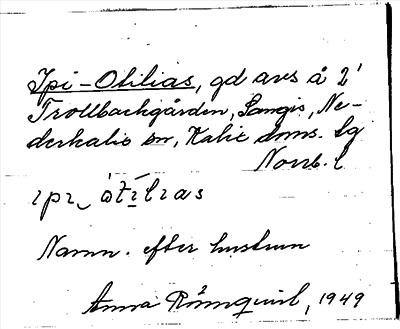 Ipi-Otilias, gd avs å 2'
Trollbackgården, Sangis, Ne-
derkalix sn, Kalix dnms. lg
Norrb. l
ıpı‿ òtı̄lıas
Namn. efter hustrun
Anna Rönnquist, 1949